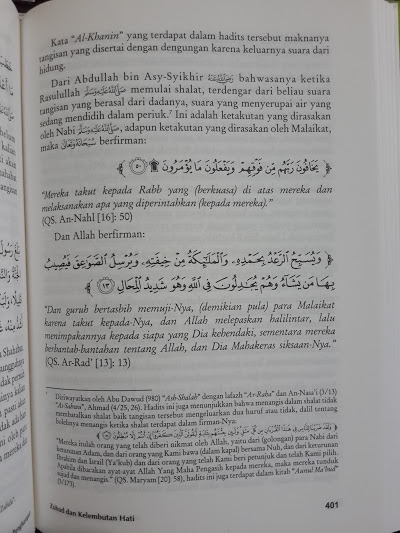 Kata "Al-Khanin" yang terdapat dalam hadits tersebut maknanya
tangisan yang disertai dengan dengungan karena keluarnya suara dari
hidung.
Dari Abdullah bin Asy-Syikhir bahwasanya ketika
Rasulullah ﷺ memulai shalat, terdengar dari beliau suara
tangisan yang berasal dari dadanya, suara yang menyerupai air yang
sedang mendidih dalam periuk.⁷ Ini adalah ketakutan yang dirasakan
oleh Nabi ﷺ, adapun ketakutan yang dirasakan oleh Malaikat,
maka berfirman:
يَخَافُونَ رَبَّهُم مِّن فَوْقِهِمْ وَيَفْعَلُونَ مَا يُؤْمَرُونَ ۩ ٥٠
"Mereka takut kepada Rabb yang (berkuasa) di atas mereka dan
melaksanakan apa yang diperintahkan (kepada mereka)."
(QS. An-Nahl [16]: 50)
Dan Allah berfirman:
وَيُسَبِّحُ الرَّعْدُ بِحَمْدِهِ، وَالْمَلَائِكَةُ مِنْ خِيفَتِهِ، وَيُرْسِلُ الصَّوَاعِقَ فَيُصِيبُ
بِهَا مَن يَشَاءُ وَهُمْ يُجَادِلُونَ فِي اللَّهِ وَهُوَ شَدِيدُ الْمِحَالِ ١٣
"Dan guruh bertasbih memuji-Nya, (demikian pula) para Malaikat
karena takut kepada-Nya, dan Allah melepaskan halilintar, lalu
menimpakannya kepada siapa yang Dia kehendaki, sementara mereka
berbantah-bantahan tentang Allah, dan Dia Mahakeras siksaan-Nya."
(QS. Ar-Rad' [13]: 13)
⁷ Diriwayatkan oleh Abu Dawud (980) "Ash-Shalah" dengan lafazh "Ar-Raha" dan An-Nasa'i (3/13)
"As-Sahwu", Ahmad (4/25, 26). Hadits ini juga menunjukkan bahwa menangis dalam shalat tidak
membatalkan shalat baik tangisan tersebut mengeluarkan dua huruf atau tidak, dalil tentang
bolehnya menangis dalam shalat terdapat dalam firman-Nya:
"Mereka itulah orang yang telah diberi nikmat oleh Allah, yaitu dari (golongan) para Nabi dari
keturunan Adam, dan dari orang yang Kami bawa (dalam kapal) bersama Nuh, dan dari keturunan
Ibrahim dan Israil (Ya'kub) dan dari orang yang telah Kami beri petunjuk dan telah Kami pilih.
Apabila dibacakan ayat-ayat Allah Yang Maha Pengasih kepada mereka, maka mereka tunduk
sujud dan menangis." (QS. Maryam [20]: 58), hadits ini juga terdapat dalam kitab "Aunul Ma'bud"
(3/173).
Zuhud dan Kelembutan Hati
401